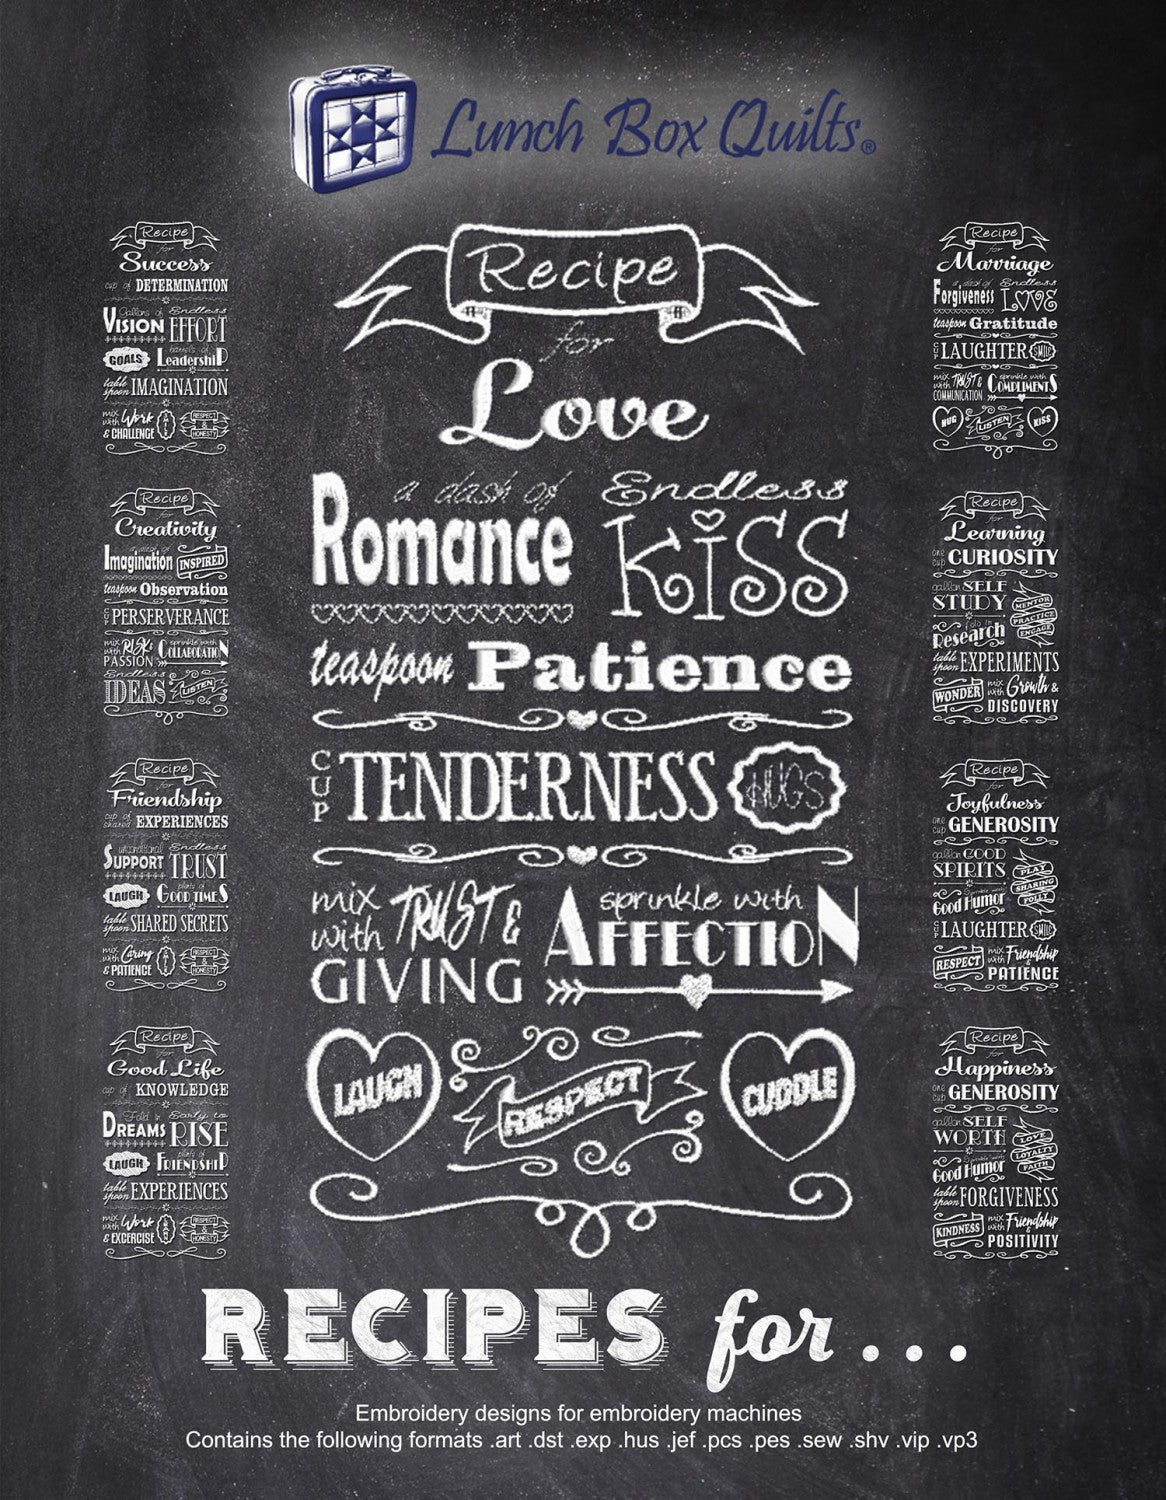 Lunch Box Quilts®
Recipe
for
Love
a dash of
Romance
Endless
KISS
teaspoon Patience
CUP TENDERNESS HUGS
mix
with TRUST &
GIVING
sprinkle with
AFFECTION
LAUGH RESPECT CUDDLE
Recipe
for
Success
cup of DETERMINATION
Gallons of Endless
VISION EFFORT
GOALS barrels of LeadershiP
table
spoon IMAGINATION
mix
with Work
& CHALLENGE
RESPECT
&
HONESTY
Recipe
for
Creativity
a dash of
Imagination INSPIRED
teaspoon Observation
CUP PERSERVERANCE
mix
with RISK &
PASSION
sprinkle with
COLLABORATION
Endless
IDEAS LISTEN
Recipe
for
Friendship
cup of
shared EXPERIENCES
unconditional Endless
SUPPORT TRUST
LAUGH plenty of GOOD TIMES
table
spoon SHARED SECRETS
mix
with Caring
& PATIENCE
RESPECT
&
HONESTY
Recipe
for
Good Life
cup of KNOWLEDGE
Fold in Early to
DREAMS RISE
LAUGH plenty of FRIENDSHIP
table
spoon EXPERIENCES
mix
with Work
& EXCERCISE
RESPECT
&
HONESTY
Recipe
for
Marriage
a dash of Endless
Forgiveness LOVE
teaspoon Gratitude
CUP LAUGHTER SMILE
mix
with TRUST &
COMMUNICATION
sprinkle with
COMPLIMENTS
HUG LISTEN KISS
Recipe
for
Learning
one
cup CURIOSITY
gallon SELF
STUDY
MENTOR
PRACTICE
ENGAGE
fold in
Research
table
spoon EXPERIMENTS
WONDER mix
with Growth &
DISCOVERY
Recipe
for
Joyfulness
one
cup GENEROSITY
gallon GOOD
SPIRITS
PLAY
SHARING
FOLLY
sprinkle with
Good Humor
CUP LAUGHTER SMILE
RESPECT mix
with Friendship
&
PATIENCE
Recipe
for
Happiness
one
cup GENEROSITY
gallon SELF
WORTH
LOVE
LOYALTY
FAITH
sprinkle with
Good Humor
table
spoon FORGIVENESS
KINDNESS mix
with Friendship
&
POSITIVITY
RECIPES for...
Embroidery designs for embroidery machines
Contains the following formats .art .dst .exp .hus .jef .pcs .pes .sew .shv .vip .vp3